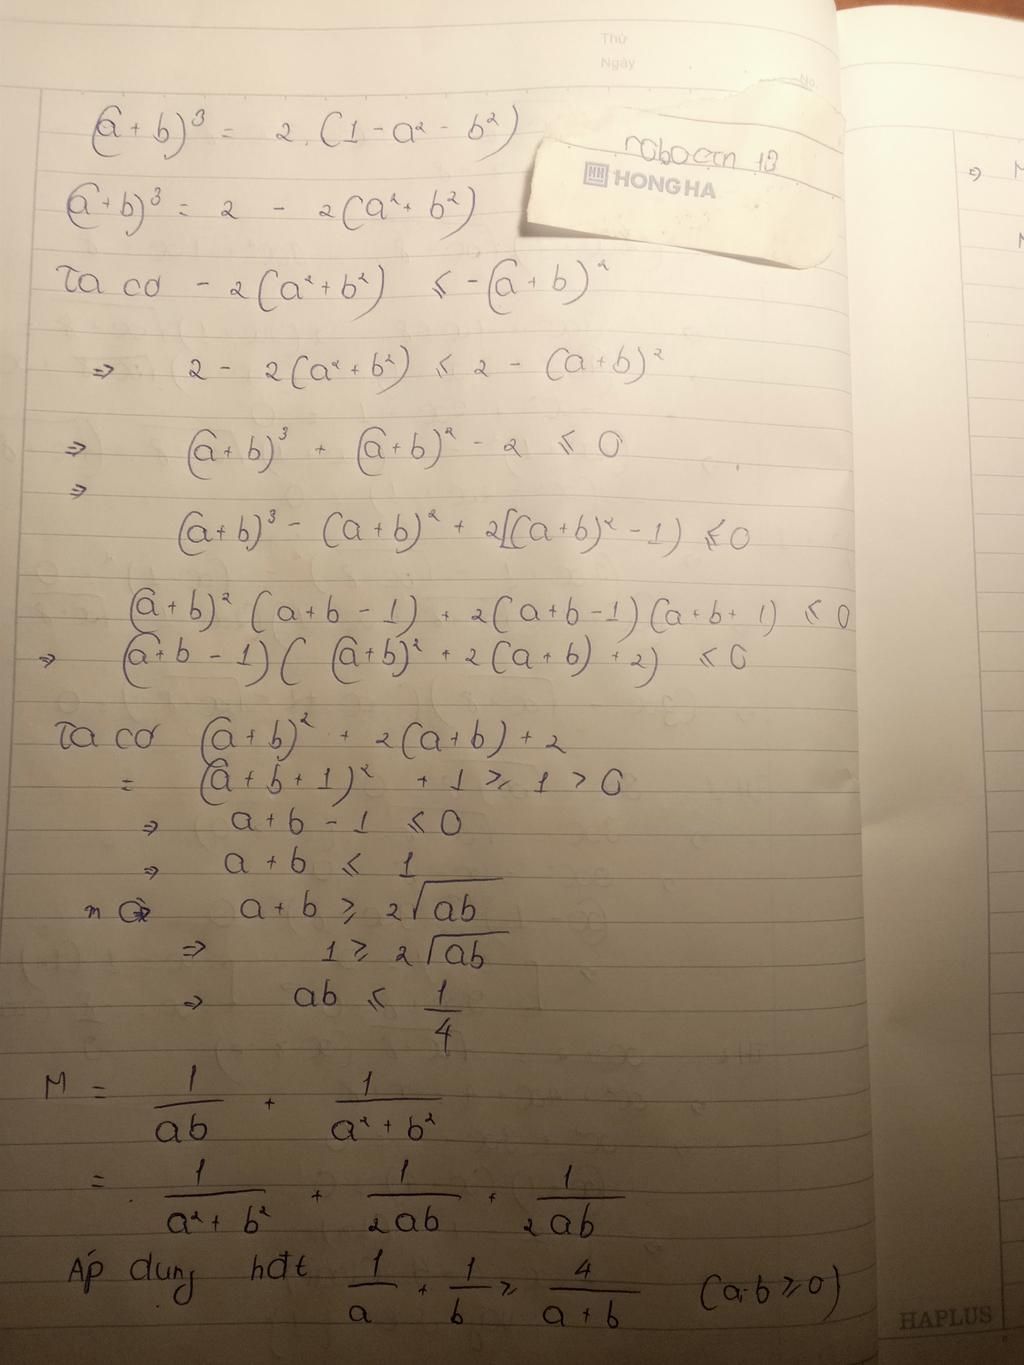 Thứ
Ngày
No.
(a + b)³ = 2.(1 - a² - b²)
nabocm 13
HH HONG HA
(a + b)³ = 2 - 2(a² + b²)
Ta có - 2(a² + b²) ⩽ -(a + b)²
⇒ 2 - 2(a² + b²) ⩽ 2 - (a + b)²
⇒ (a + b)³ + (a + b)² - 2 ⩽ 0
⇒
(a + b)³ - (a + b)² + 2[(a + b)² - 1) ⩽ 0
(a + b)² (a + b - 1) + 2(a + b - 1)(a + b + 1) ⩽ 0
⇒ (a + b - 1)( (a + b)² + 2(a + b) + 2) ⩽ 0
Ta có (a + b)² + 2(a + b) + 2
= (a + b + 1)² + 1 ⩾ 1 > 0
⇒ a + b - 1 ⩽ 0
⇒ a + b ⩽ 1
a + b ⩾ 2√ab
⇒ 1 ⩾ 2√ab
⇒ ab ⩽ 1/4
M = 1/ab + 1/(a² + b²)
= 1/(a² + b²) + 1/2ab + 1/2ab
Áp dụng bđt 1/a + 1/b ⩾ 4/(a + b) (a.b ⩾ 0)
⇒ M
M
HAPLUS